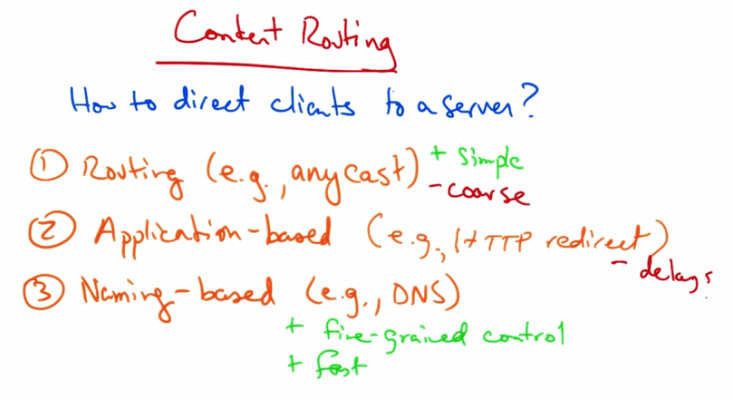 Content Routing
How to direct clients to a server?
① Routing (e.g., anycast) + simple
- coarse
② Application-based (e.g., HTTP redirect)
- delays
③ Naming-based (e.g., DNS)
+ fine-grained control
+ fast